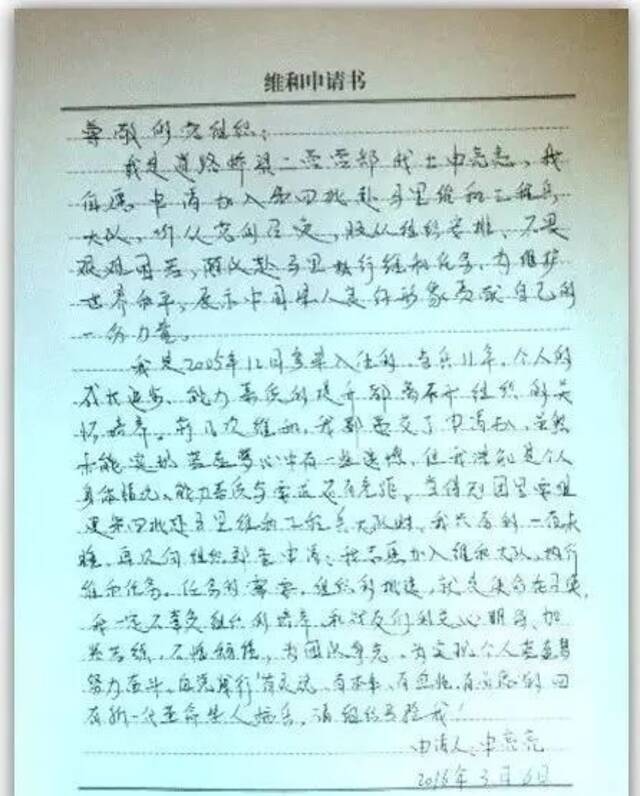 维和申请书
尊敬的党组织:
我是道路桥梁二营营部战士申亮亮,我
自愿申请加入第四批赴马里维和工程兵
大队,听从党的召唤,服从组织安排、不畏
艰难困苦,赴马里执行维和任务,为维护
世界和平,展示中国军人良好形象贡献自己的
一份力量。
我是2005年12月入伍的,当兵11年,个人的
成长进步、能力素质的提升都离不开组织的关
怀培养。前几次维和,我都递交了申请书,虽然
未能实现心中有一些遗憾,但我深知是个人
身体情况、能力素质与要求还有差距。当得知团里要组
建第四批赴马里维和工程兵大队时,我
再次向组织郑重申请:我志愿加入维和大队,执行
维和任务。任务的需要,组织的挑选,就是使命
我一定不辜负组织的培养和战友们的关心期望,加
紧苦练,不怕,为团队争光,为实现个人
努力奋斗,自觉践行有灵魂、有本事、有血性、有品德的四
有新一代革命军人标准,请组织考验我!
申请人:申亮亮
2016年3月6日